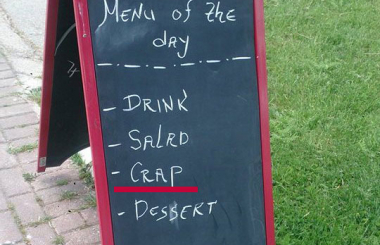 MENU of the
day
- DRINK
- SALAD
- CRAP
- DESSERT